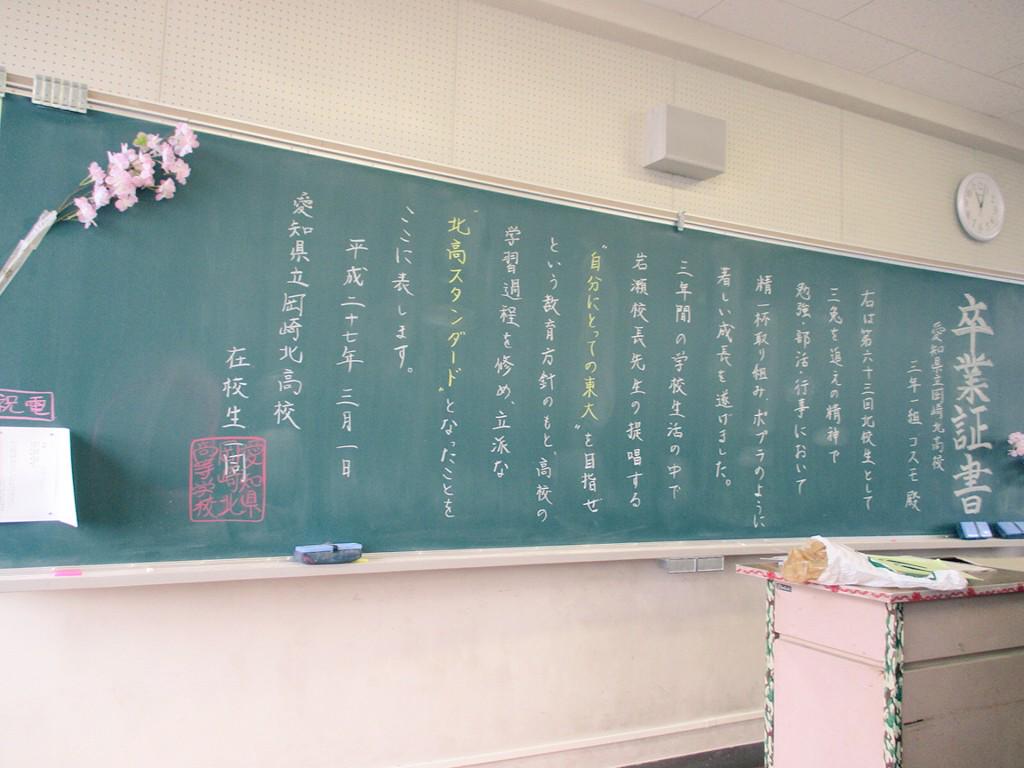 卒業証書
愛知県立岡崎北高校
三年一組 コスモ 殿
右は第六十三回北校生として
三兎を追えの精神で
勉強・部活・行事において
精一杯取り組み、ポプラのように
著しい成長を遂げました。
三年間の学校生活の中で
岩瀬校長先生の提唱する
"自分にとっての東大"を目指せ
という教育方針のもと、高校の
学習過程を修め、立派な
"北高スタンダード"となったことを
ここに表します。
平成二十七年 三月一日
愛知県立岡崎北高校
在校生一同
愛知県
岡崎北
高等学校
祝電